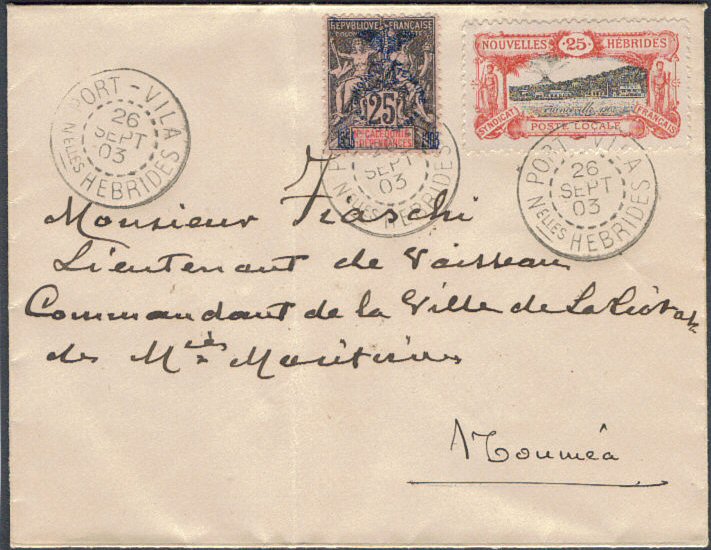 REPVBLIQVE FRANCAISE
25
Nlle CALEDONIE
DEPENDANCES
NOUVELLES 25 HÉBRIDES
SYNDICAT FRANÇAIS
POSTE LOCALE
PORT-VILA
26
SEPT
03
Nelles HEBRIDES
PORT-VILA
SEPT
03
Nelles HEBRIDES
PORT-VILA
26
SEPT
03
Nelles HEBRIDES
Monsieur
Lieutenant de Vaisseau
Commandant de la Ville de La Ciotat
des Mies Maritimes
Nouméa